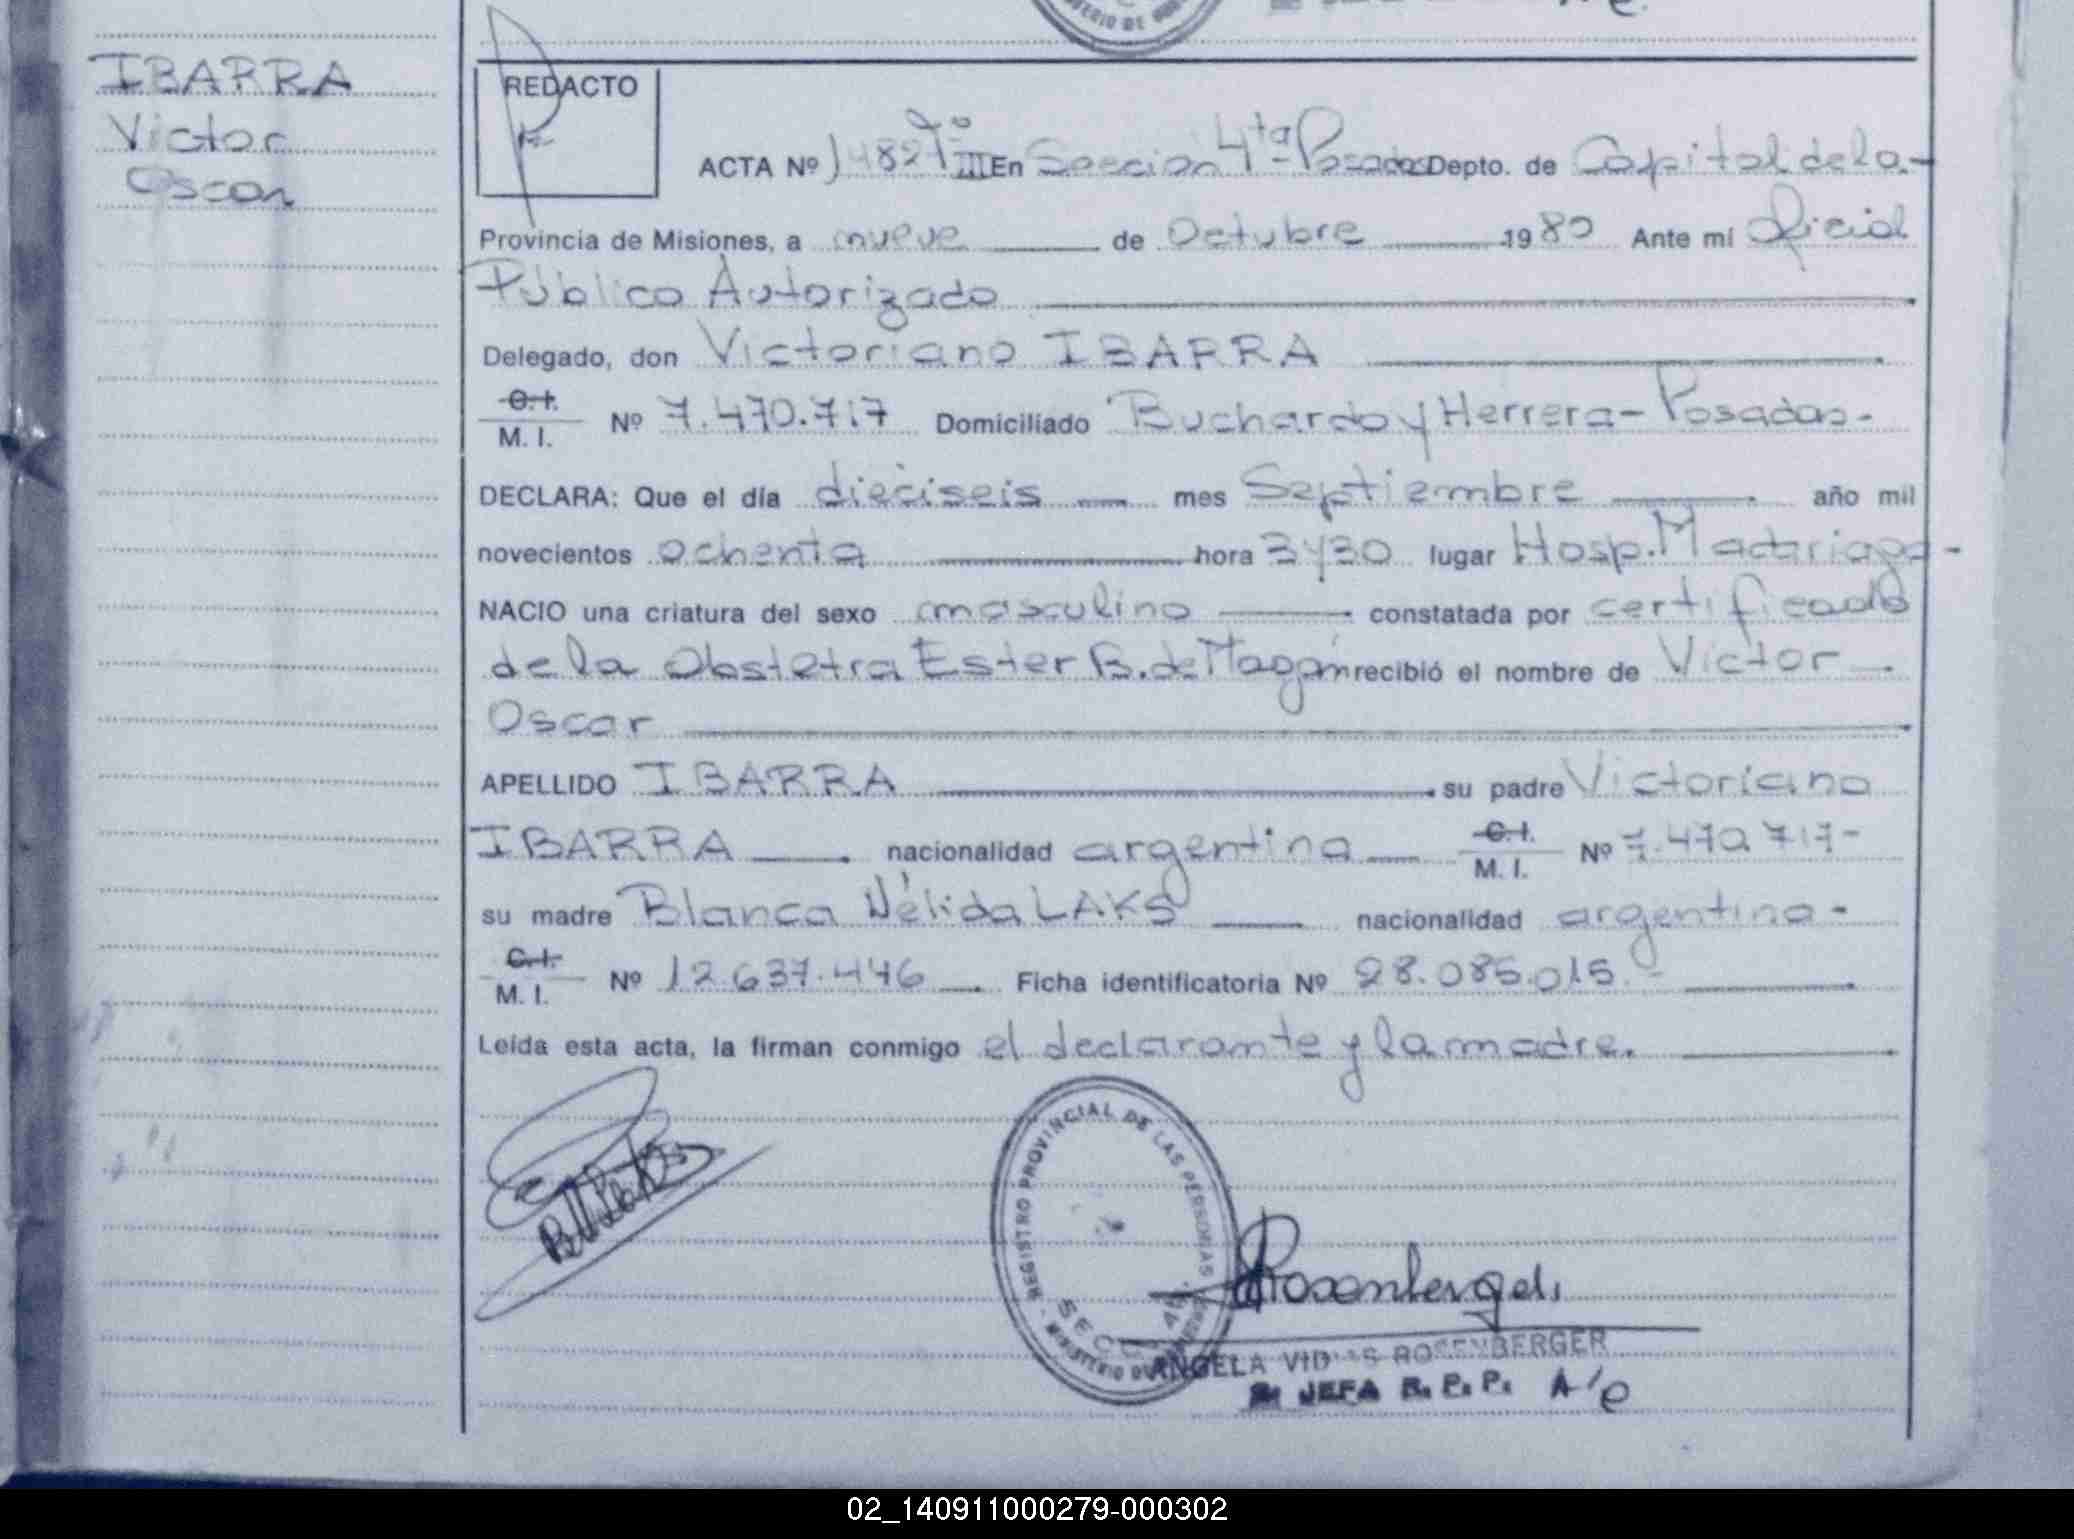 IBARRA
Victor
Oscar
REDACTO
ACTA Nº 1482 Tº III En Sección 4ta- Posadas Depto. de Capital de la-
Provincia de Misiones, a nueve de Octubre 1980 Ante mí Oficial
Público Autorizado
Delegado, don Victoriano IBARRA
C.I.
M. I. Nº 7.470.717 Domiciliado Buchardo y Herrera- Posadas-
DECLARA: Que el día dieciseis mes Septiembre año mil
novecientos ochenta hora 3y30 lugar Hosp. Madariaga-
NACIO una criatura del sexo masculino constatada por certificado
de la Obstetra Ester B. de Magán recibió el nombre de Victor
Oscar
APELLIDO IBARRA su padre Victoriano
IBARRA nacionalidad argentina C.I. M. I. Nº 7.470.717-
su madre Blanca Nélida LAKS nacionalidad argentina-
C.I.
M. I. Nº 12.637.446 Ficha identificatoria Nº 28.085.015.-
Leída esta acta, la firman conmigo el declarante y la madre.
REGISTRO PROVINCIAL DE LAS PERSONAS
SECC. 4ta.
MINISTERIO DE
Rosenberger
ANGELA ROSENBERGER
JEFA R. P. P. A/C
02_140911000279-000302